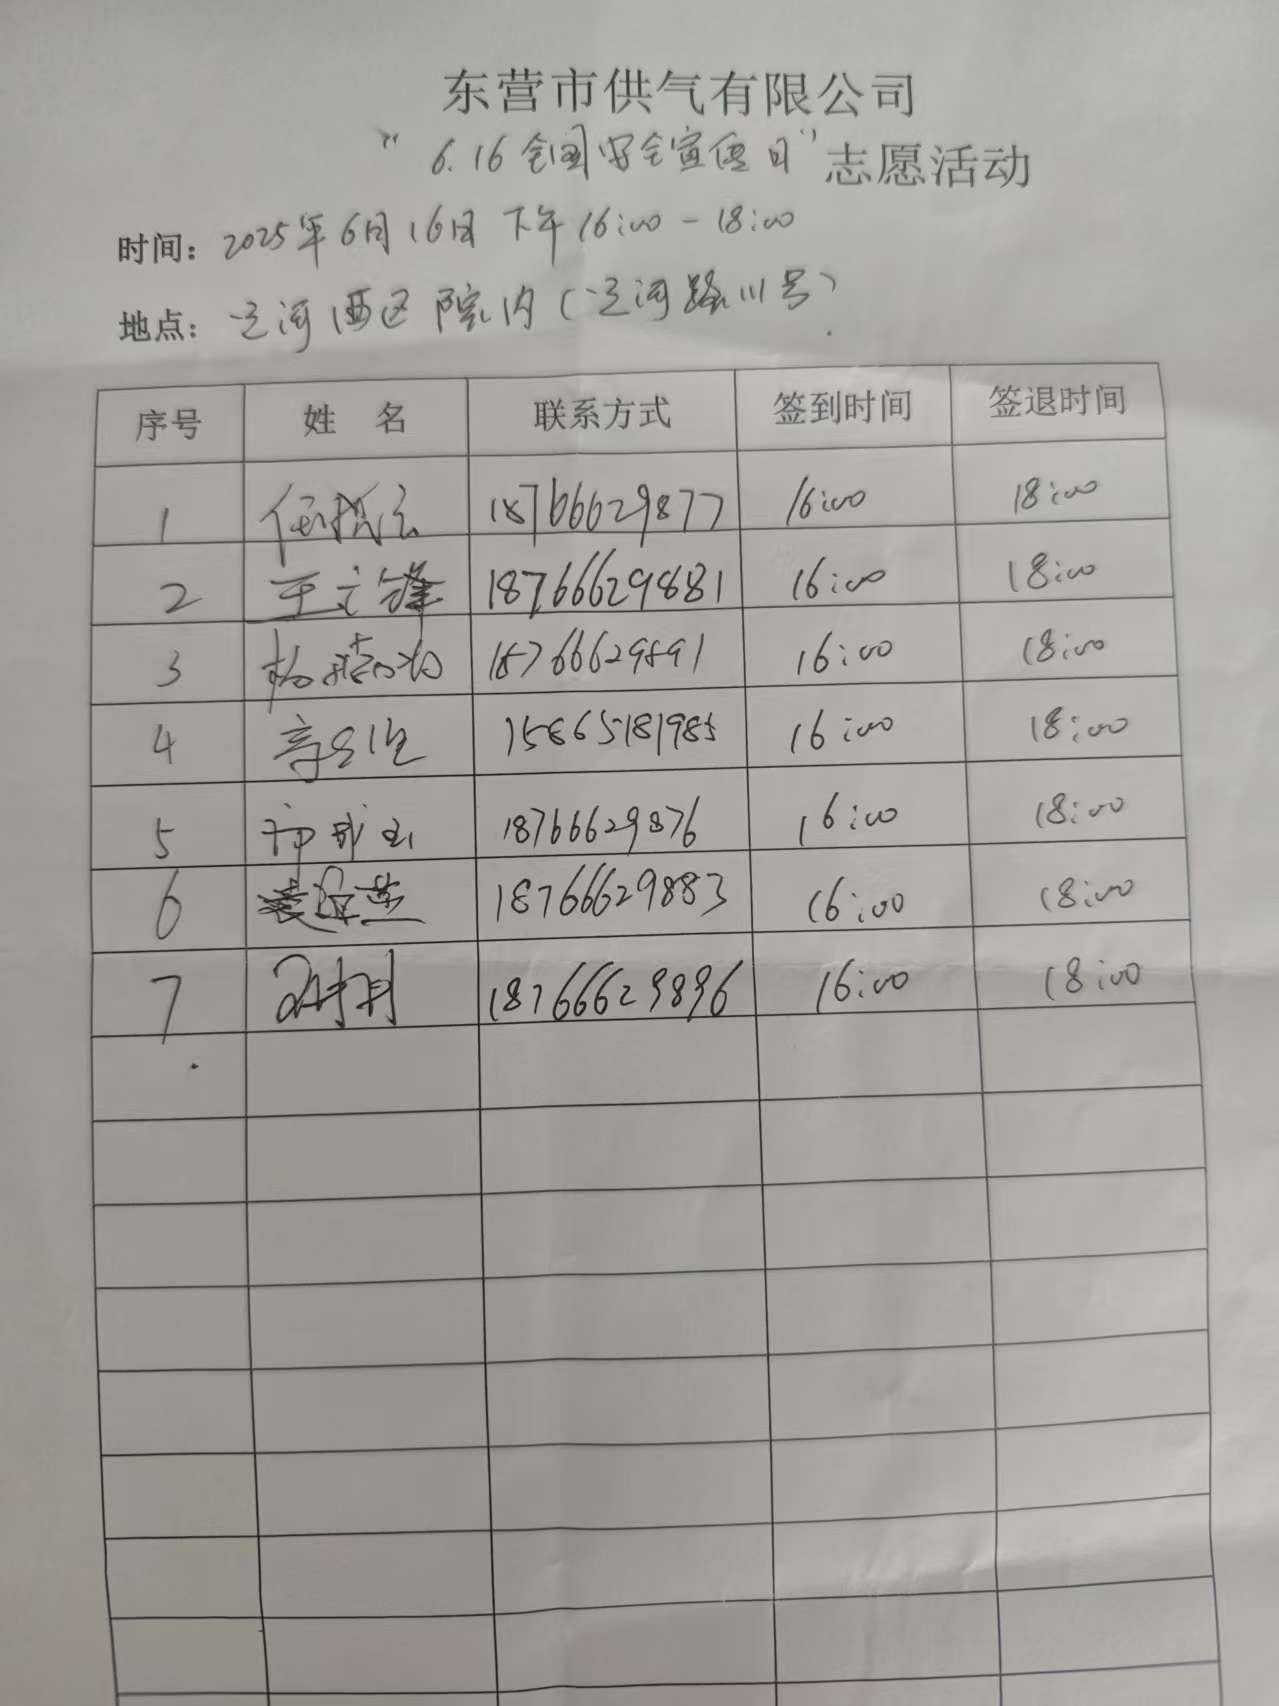 东营市供气有限公司
"6.16全国安全宣传日"志愿活动
时间：2025年6月16日 下午 16:00-18:00
地点：辽河西区院内（辽河路111号）
序号 姓 名 联系方式 签到时间 签退时间
1 18766629877 16:00 18:00
2 王立锋 18766629881 16:00 18:00
3 18766629891 16:00 18:00
4 15865181985 16:00 18:00
5 18766629876 16:00 18:00
6 18766629883 16:00 18:00
7 18766629896 16:00 18:00